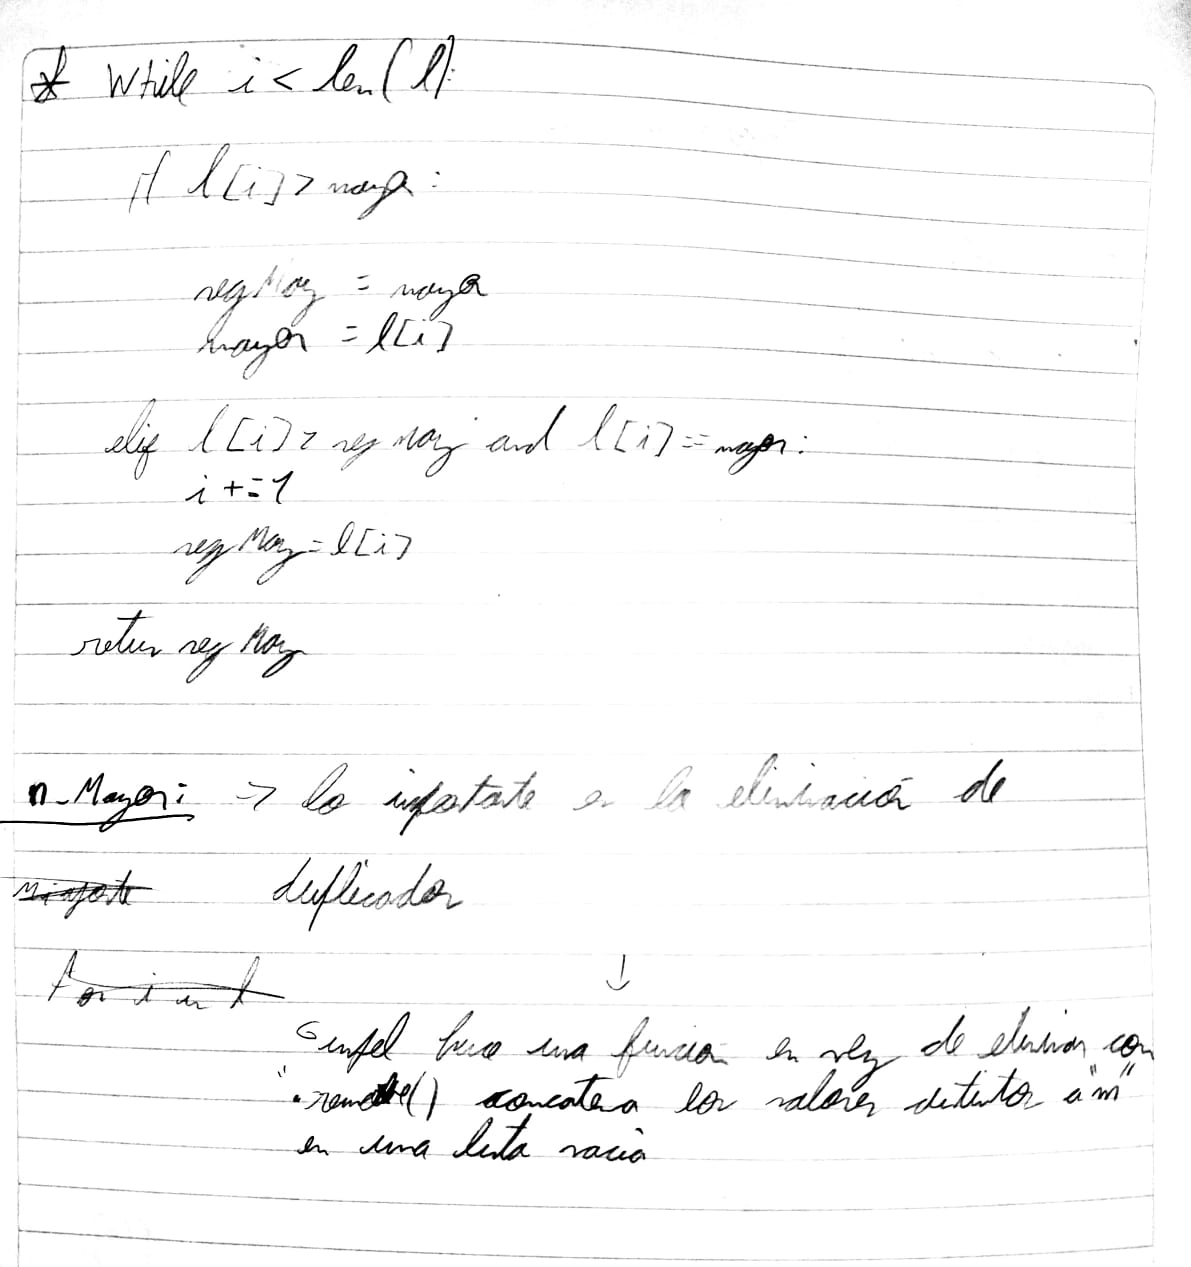 * While i < len(l):
if l[i] > mayor:
segMay = mayor
mayor = l[i]
elif l[i] > seg May and l[i] == mayor:
i += 1
seg May = l[i]
retur seg May
n-Mayor: -> lo importate es la eliminación de
duplicados
for i in l
↓
hace una funcion en vez de eliminar con
".remove() concatena los valores distintos a "m"
en una lista vacia